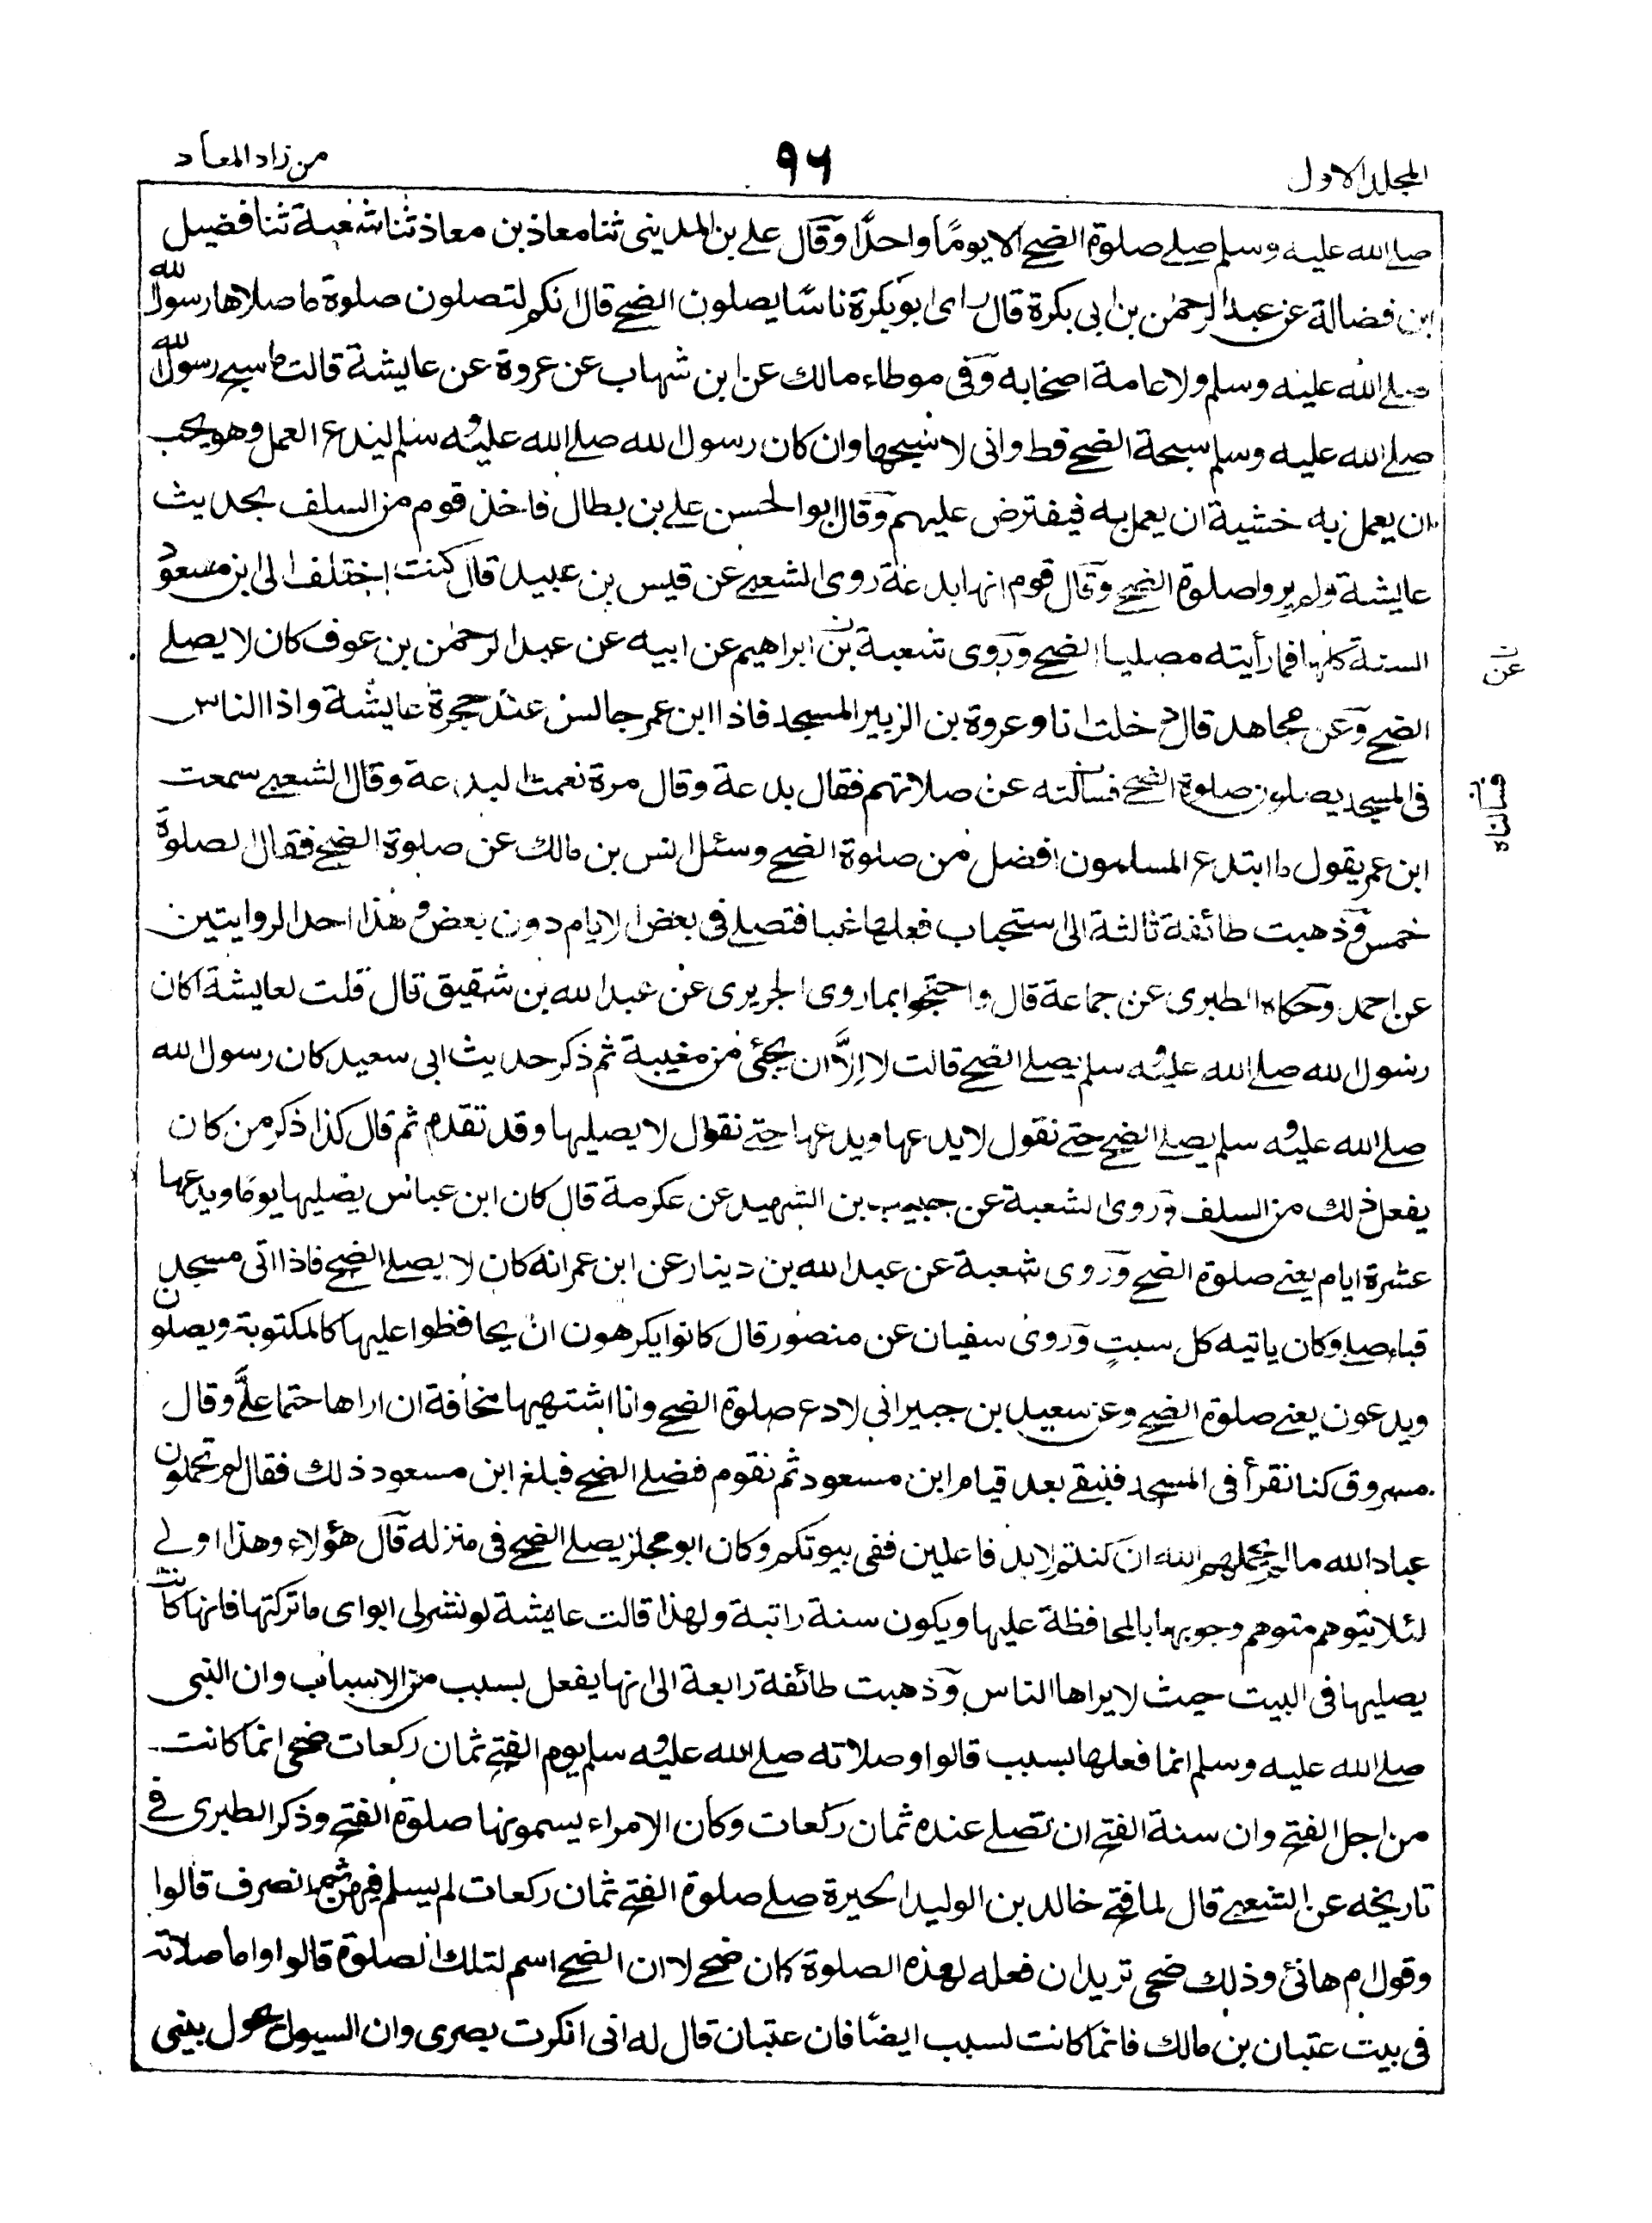 المجلد الاول
٩٦
من زاد المعاد
صلے الله عليه وسلم صلے صلوة الضحے الا يومًا واحدًا وقال علے بن المدينى ثنا معاذ بن معاذ ثنا شعبة ثنا فضيل
ابن فضالة عن عبد الرحمٰن بن ابى بكرة قال راى ابو بكرة ناسًا يصلون الضحے قال انكم لتصلون صلوة ما صلاها رسول الله
صلے الله عليه وسلم ولا عامة اصحابه وفى موطاء مالك عن ابن شهاب عن عروة عن عايشة قالت ما سبح رسول الله
صلے الله عليه وسلم سبحة الضحے قط وانى لاسبحها وان كان رسول الله صلے الله عليه وسلم ليدع العمل وهو يحب
ان يعمل به خشية ان يعمل به فيفترض عليهم وقال ابو الحسن علے بن بطال فاخذ قوم من السلف بحديث
عايشة ولم يروا صلوة الضحے وقال قوم انها بدعة روى الشعبے عن قيس بن عبيد قال كنت اختلف الى ابن مسعود
السنة كلها فما رأيته مصليا الضحے وروى شعبة بن ابراهيم عن ابيه عن عبد الرحمٰن بن عوف كان لا يصلے
الضحے وعن مجاهد قال دخلت انا وعروة بن الزبير المسجد فاذا ابن عمر جالس عند حجرة عايشة واذا الناس
فى المسجد يصلون صلوة الضحے فسألته عن صلاتهم فقال بدعة وقال مرة نعمت البدعة وقال الشعبے سمعت
ابن عمر يقول ما ابتدع المسلمون افضل من صلوة الضحے وسئل انس بن مالك عن صلوة الضحے فقال الصلوة
خمس وذهبت طائفة ثالثة الى استحباب فعلها غبا فتصلے فى بعض الايام دون بعض وهذا احد الروايتين
عن احمد وحكاه الطبرى عن جماعة قال واحتجوا بما روى الجريرى عن عبد الله بن شقيق قال قلت لعايشة اكان
رسول الله صلے الله عليه وسلم يصلے الضحے قالت لا اِلاَّ ان يجئ من مغيبة ثم ذكر حديث ابى سعيد كان رسول الله
صلے الله عليه وسلم يصلے الضحے حتے نقول لا يدعها ويدعها حتے نقول لا يصليها وقد تقدم ثم قال كذا ذكر من كان
يفعل ذلك من السلف وروى شعبة عن حبيب بن الشهيد عن عكرمة قال كان ابن عباس يصليها يوما ويدعها
عشرة ايام يعنے صلوة الضحے وروى شعبة عن عبد الله بن دينار عن ابن عمر انه كان لا يصلے الضحے فاذا اتى مسجد
قباء صلے وكان ياتيه كل سبتٍ وروى سفيان عن منصور قال كانوا يكرهون ان يحافظوا عليها كالمكتوبة ويصلون
ويدعون يعنے صلوة الضحے وعن سعيد بن جبير انى لادع صلوة الضحے وانا اشتهيها مخافة ان اراها حتما علَّے وقال
مسروق كنا نقرأ فى المسجد فنبقے بعد قيام ابن مسعود ثم نقوم فنصلے الضحے فبلغ ابن مسعود ذلك فقال لم تحملون
عباد الله ما لم يحملهم الله ان كنتم لا بد فاعلين ففى بيوتكم وكان ابو مجلز يصلے الضحے فى منزله قال هؤلاء وهذا اولے
لئلا يتوهم متوهم وجوبها بالمحافظة عليها ويكون سنة راتبة ولهذا قالت عايشة لو نشر لى ابواى ما تركتها فانها كانت
يصليها فى البيت حيث لا يراها الناس وذهبت طائفة رابعة الى انها يفعل بسبب من الاسباب وان النبى
صلے الله عليه وسلم انما فعلها بسبب قالوا وصلاته صلے الله عليه وسلم يوم الفتح ثمان ركعات ضحى انما كانت
من اجل الفتح وان سنة الفتح ان تصلے عنده ثمان ركعات وكان الامراء يسمونها صلوة الفتح وذكر الطبرى فے
تاريخه عن الشعبے قال لما فتح خالد بن الوليد الحيرة صلے صلوة الفتح ثمان ركعات لم يسلم فيهن ثم انصرف قالوا
وقول ام هانئ وذلك ضحى تريد ان فعله لهذه الصلوة كان ضحے لا ان الضحے اسم لتلك الصلوة قالوا واما صلاته
فى بيت عتبان بن مالك فانما كانت لسبب ايضًا فان عتبان قال له انى انكرت بصرى وان السيول تحول بينى
ن
عن
فسألناه